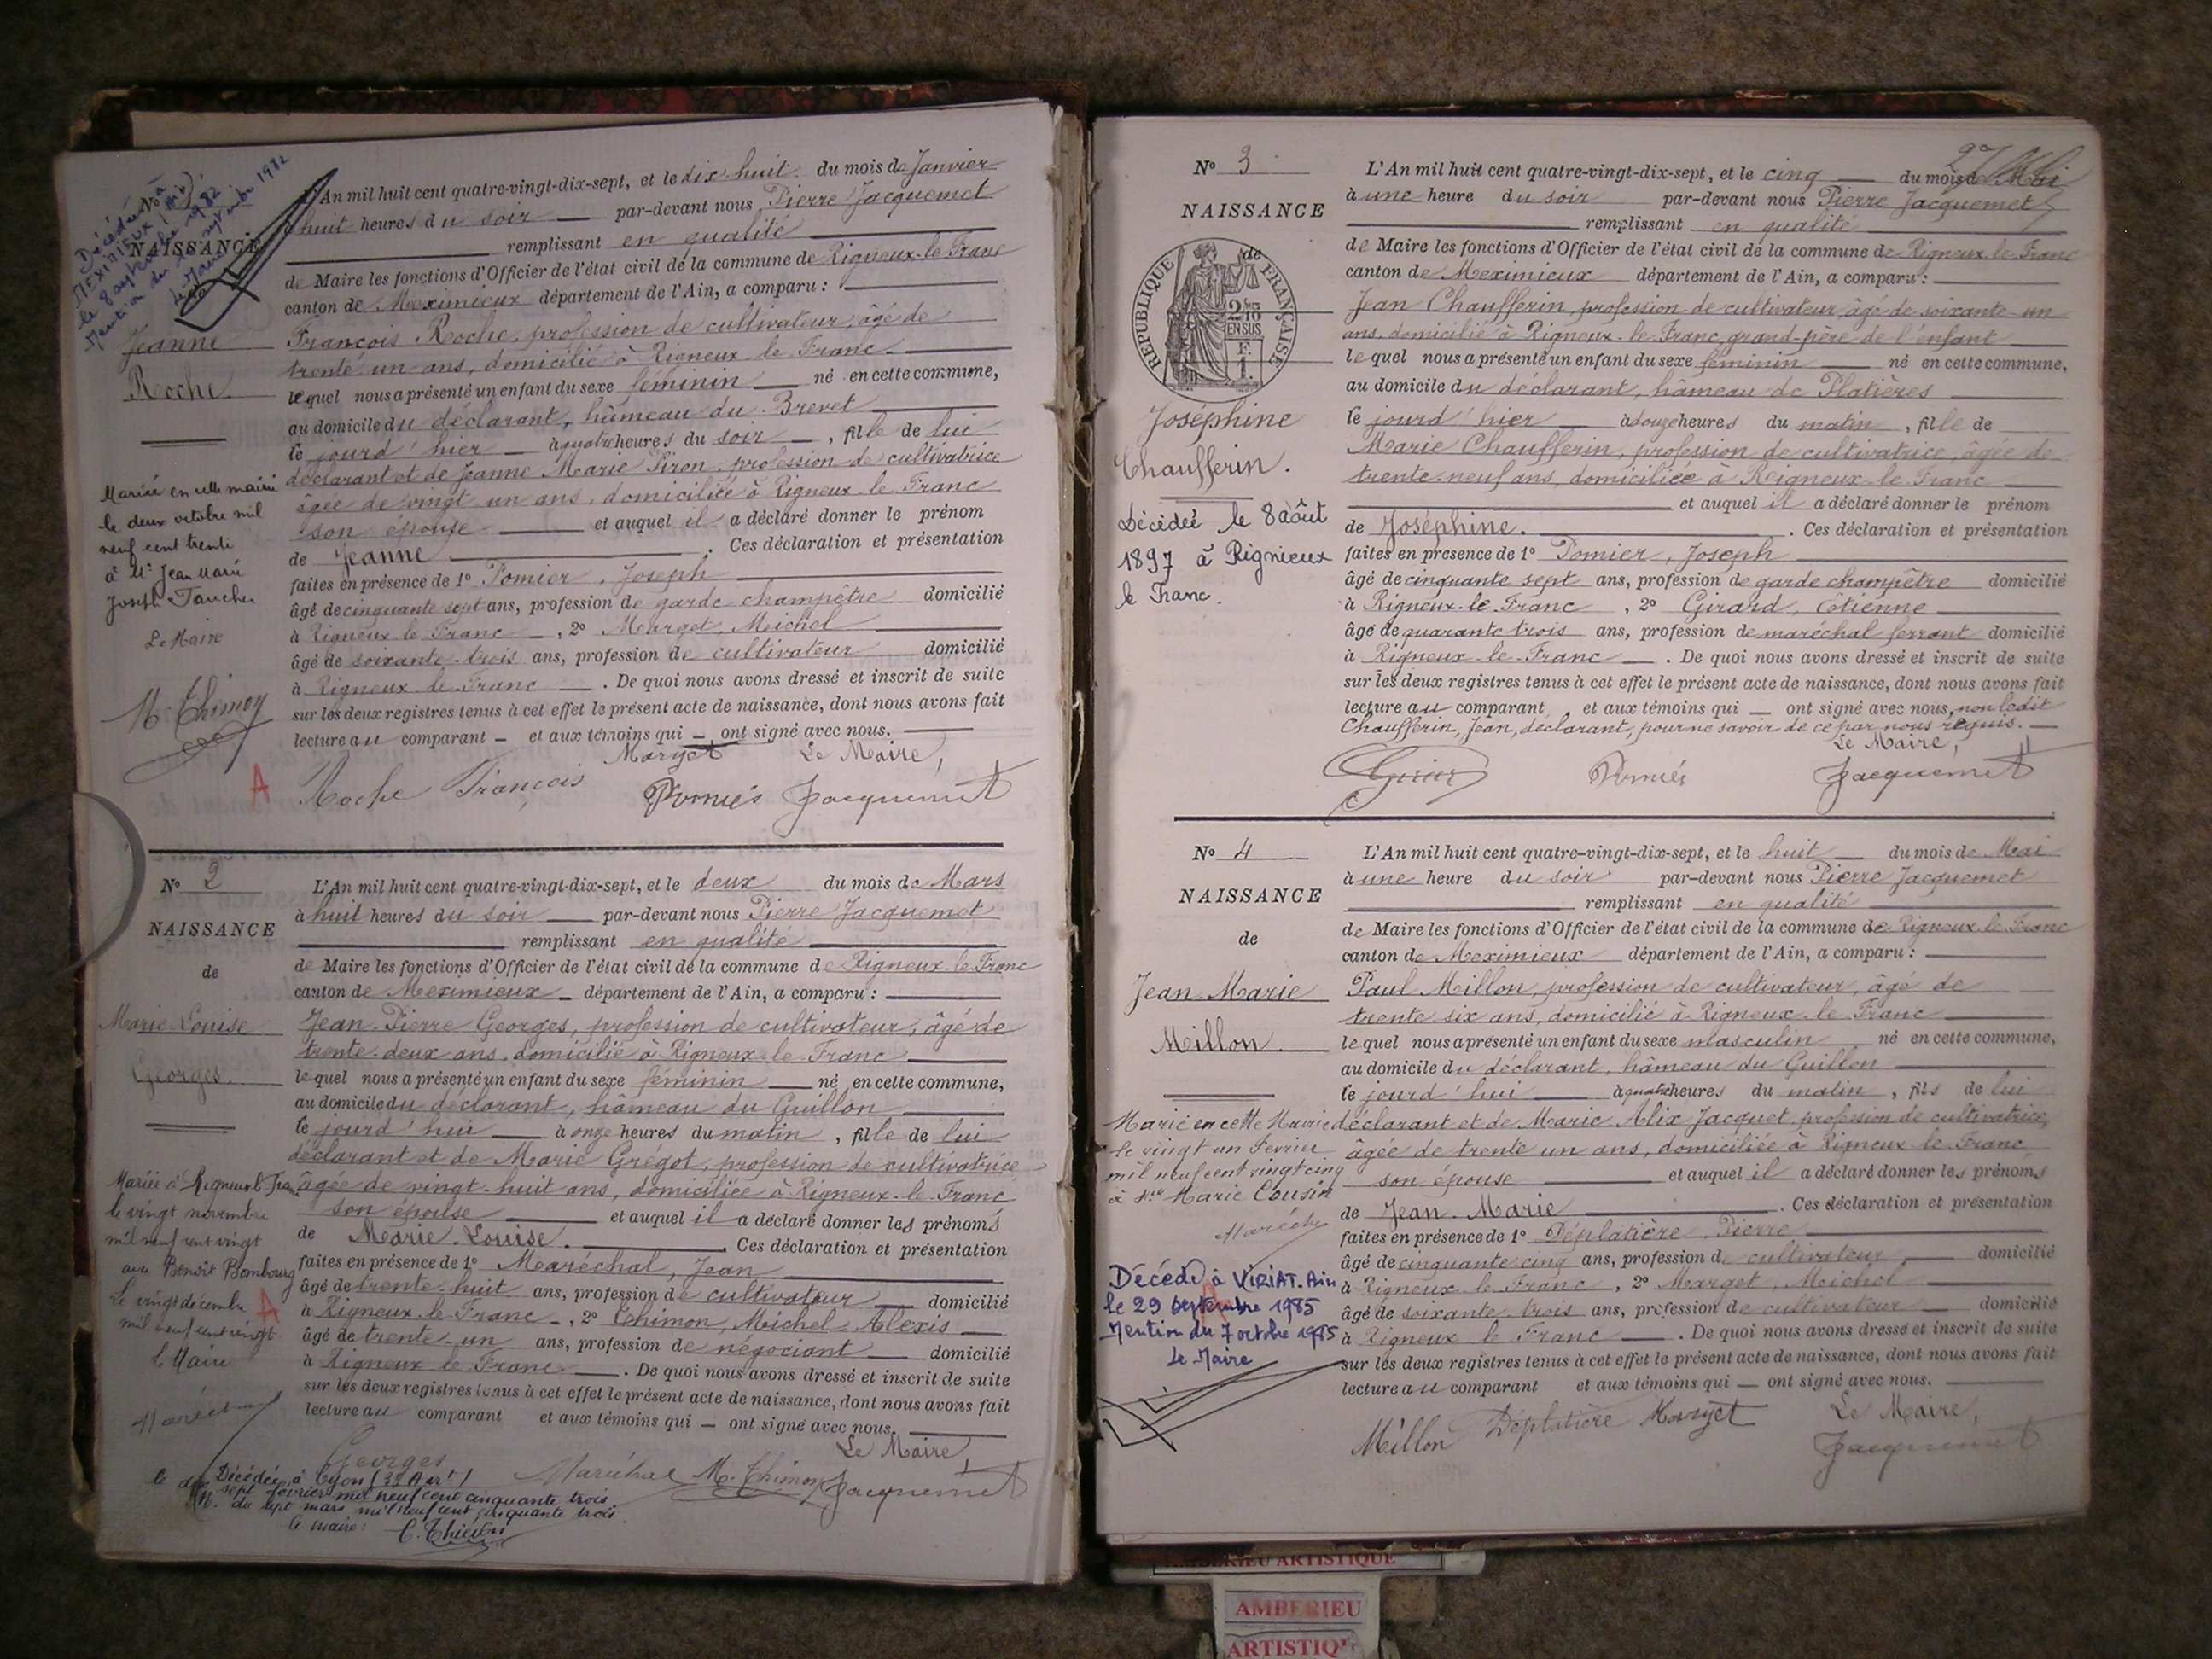 Décédée à
MEXIMIEUX (Ain)
le 8 septembre 1982
Mention du septembre 1982
Le Maire
NAISSANCE
Jeanne
Roche.
Mariée en cette mairie
le deux octobre mil
neuf cent trente
à Mr Jean Marie
Joseph Faucher
Le Maire
M. Thimon
A
L'An mil huit cent quatre-vingt-dix-sept, et le dix-huit du mois de Janvier
à huit heures du soir par-devant nous Pierre Jacquemet
remplissant en qualité
de Maire les fonctions d'Officier de l'état civil de la commune de Rigneux-le-Franc
canton de Meximieux département de l'Ain, a comparu :
François Roche, profession de cultivateur, âgé de
trente un ans, domicilié à Rigneux-le-Franc
lequel nous a présenté un enfant du sexe féminin né en cette commune,
au domicile du déclarant, hâmeau du Brevet
le jourd'hier à quatre heures du soir, fille de lui
déclarant et de Jeanne Marie Piron, profession de cultivatrice
âgée de vingt un ans, domiciliée à Rigneux-le-Franc
son épouse et auquel il a déclaré donner le prénom
de Jeanne. Ces déclaration et présentation
faites en présence de 1° Pomier, Joseph
âgé de cinquante sept ans, profession de garde champêtre domicilié
à Rigneux-le-Franc, 2° Marget, Michel
âgé de soixante-trois ans, profession de cultivateur domicilié
à Rigneux-le-Franc. De quoi nous avons dressé et inscrit de suite
sur les deux registres tenus à cet effet le présent acte de naissance, dont nous avons fait
lecture au comparant et aux témoins qui ont signé avec nous.
Marget Le Maire,
Roche François Pomiés Jacquemet
N° 2
NAISSANCE
de
Marie-Louise
Georges.
Mariée à Rigneux-le-Franc
le vingt novembre
mil neuf cent vingt
avec Benoit Bombourg
Le vingt décembre
mil neuf cent vingt
le Maire
Maréchal
A
L'An mil huit cent quatre-vingt-dix-sept, et le deux du mois de Mars
à huit heures du soir par-devant nous Pierre Jacquemet
remplissant en qualité
de Maire les fonctions d'Officier de l'état civil de la commune de Rigneux-le-Franc
canton de Meximieux département de l'Ain, a comparu :
Jean-Pierre Georges, profession de cultivateur, âgé de
trente-deux ans, domicilié à Rigneux-le-Franc
lequel nous a présenté un enfant du sexe féminin né en cette commune,
au domicile du déclarant, hâmeau du Guillon
le jourd'hui à onze heures du matin, fille de lui
déclarant et de Marie Grégot, profession de cultivatrice
âgée de vingt-huit ans, domiciliée à Rigneux-le-Franc
son épouse et auquel il a déclaré donner les prénoms
de Marie-Louise. Ces déclaration et présentation
faites en présence de 1° Maréchal, Jean
âgé de trente-huit ans, profession de cultivateur domicilié
à Rigneux-le-Franc, 2° Thimon, Michel Alexis
âgé de trente-un ans, profession de négociant domicilié
à Rigneux le Franc. De quoi nous avons dressé et inscrit de suite
sur les deux registres tenus à cet effet le présent acte de naissance, dont nous avons fait
lecture au comparant et aux témoins qui ont signé avec nous.
Le Maire,
Georges Maréchal M. Thimon Jacquemet
Décédée à Lyon (3e Art)
le dix sept février mil neuf cent cinquante trois.
M. du sept mars mil neuf cent cinquante trois.
le maire :
27
N° 3
NAISSANCE
de
RÉPUBLIQUE FRANÇAISE
EN SUS
Joséphine
Chaufferin.
Décédée le 8 août
1897 à Rignieux
le Franc.
L'An mil huit cent quatre-vingt-dix-sept, et le cinq du mois de Mai
à une heure du soir par-devant nous Pierre Jacquemet
remplissant en qualité
de Maire les fonctions d'Officier de l'état civil de la commune de Rigneux-le-Franc
canton de Meximieux département de l'Ain, a comparu :
Jean Chaufferin, profession de cultivateur, âgé de soixante-un
ans, domicilié à Rigneux-le-Franc, grand-père de l'enfant
lequel nous a présenté un enfant du sexe féminin né en cette commune,
au domicile du déclarant, hâmeau de Platières
le jourd'hier à douze heures du matin, fille de
Marie Chaufferin, profession de cultivatrice, âgée de
trente-neuf ans, domiciliée à Reigneux-le-Franc
et auquel il a déclaré donner le prénom
de Joséphine. Ces déclaration et présentation
faites en présence de 1° Pomier, Joseph
âgé de cinquante sept ans, profession de garde champêtre domicilié
à Rigneux-le-Franc, 2° Girard, Etienne
âgé de quarante trois ans, profession de maréchal ferrant domicilié
à Rigneux-le-Franc. De quoi nous avons dressé et inscrit de suite
sur les deux registres tenus à cet effet le présent acte de naissance, dont nous avons fait
lecture au comparant, et aux témoins qui ont signé avec nous, non ledit
Chaufferin, Jean, déclarant, pour ne savoir de ce par nous requis.
Le Maire,
Pomiés Jacquemet
N° 4
NAISSANCE
de
Jean-Marie
Millon.
Marié en cette Mairie
le vingt un Février
mil neuf cent vingt cinq
à Mlle Marie Cousin
Maréchal
Décédé à VIRIAT. Ain
le 29 septembre 1985
Mention du 7 octobre 1985
Le Maire
L'An mil huit cent quatre-vingt-dix-sept, et le huit du mois de Mai
à une heure du soir par-devant nous Pierre Jacquemet
remplissant en qualité
de Maire les fonctions d'Officier de l'état civil de la commune de Rigneux-le-Franc
canton de Meximieux département de l'Ain, a comparu :
Paul Millon, profession de cultivateur, âgé de
trente six ans, domicilié à Rigneux-le-Franc
lequel nous a présenté un enfant du sexe masculin né en cette commune,
au domicile du déclarant, hâmeau du Guillon
le jourd'hui à quatre heures du matin, fils de lui
déclarant et de Marie Alix Jacquet, profession de cultivatrice,
âgée de trente un ans, domiciliée à Rigneux le Franc
son épouse et auquel il a déclaré donner les prénoms
de Jean-Marie. Ces déclaration et présentation
faites en présence de 1° Déplatière, Pierre
âgé de cinquante cinq ans, profession de cultivateur domicilié
à Rigneux le Franc, 2° Marget, Michel
âgé de soixante-trois ans, profession de cultivateur domicilié
à Rigneux le Franc. De quoi nous avons dressé et inscrit de suite
sur les deux registres tenus à cet effet le présent acte de naissance, dont nous avons fait
lecture au comparant et aux témoins qui ont signé avec nous.
Le Maire,
Millon Déplatière Marget Jacquemet
AMBERIEU ARTISTIQUE
AMBERIEU
ARTISTIQUE